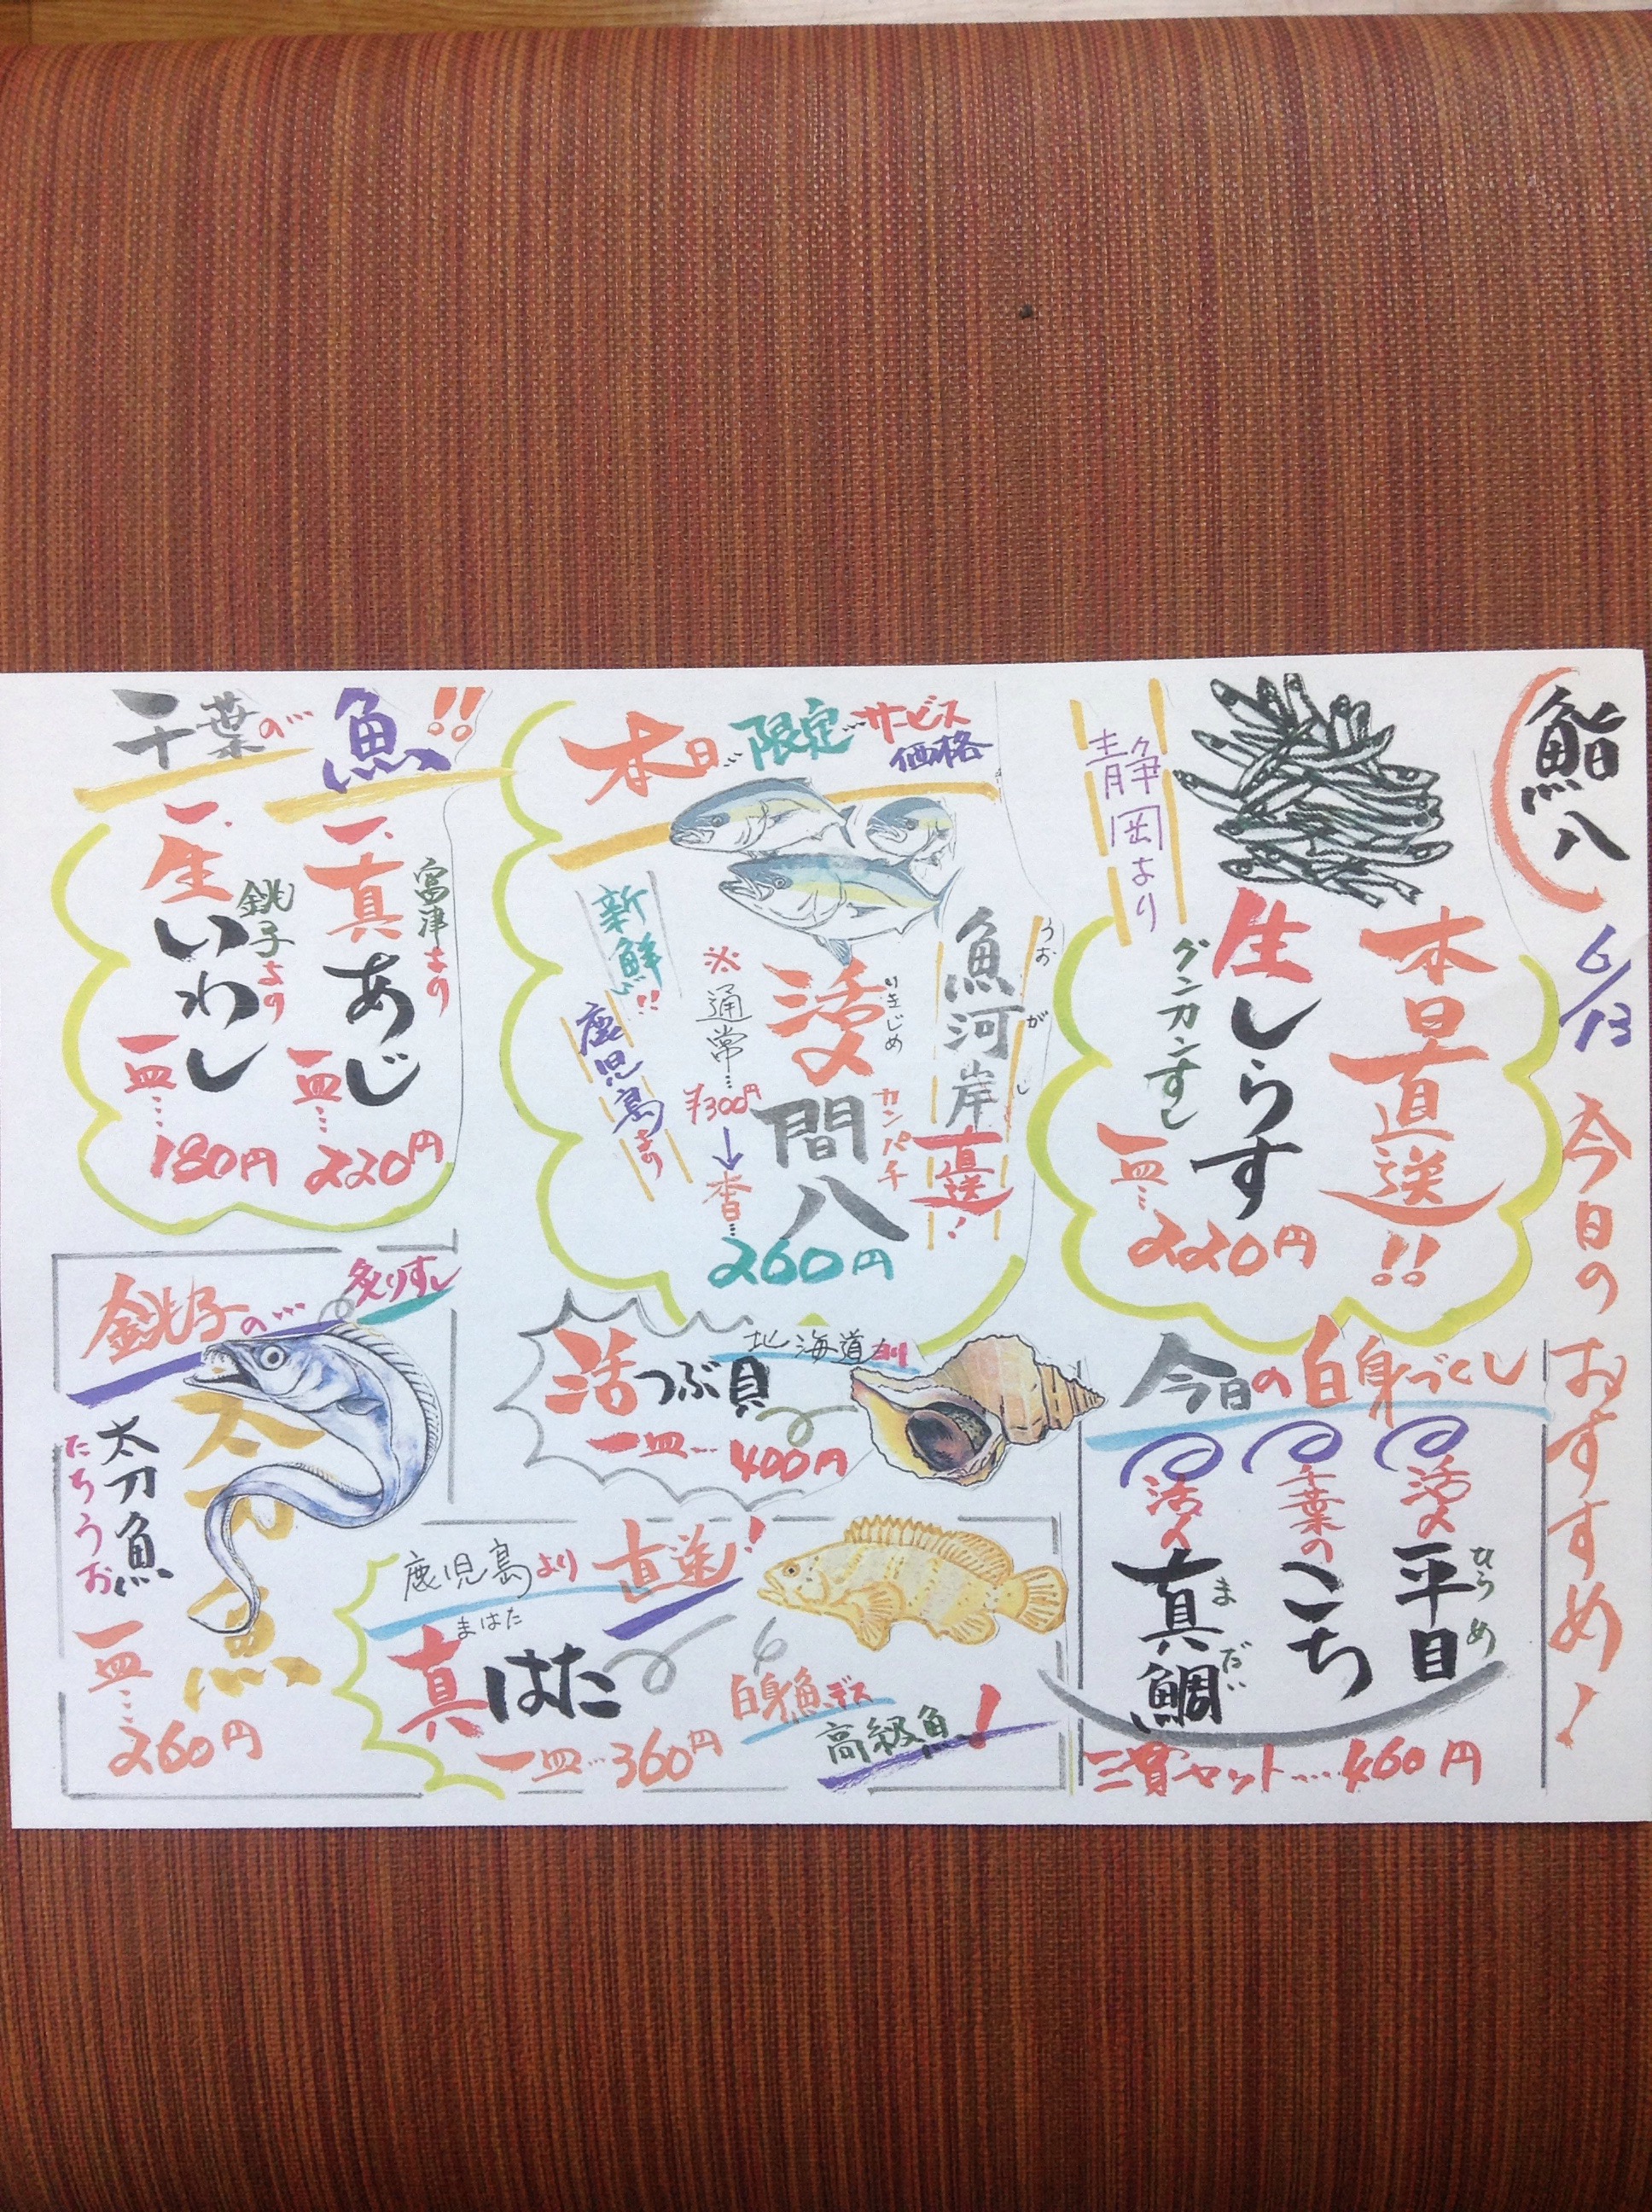 鮨八
6/13
今日のおすすめ!
本日直送!!
生しらす
グンカンすし
静岡より
一皿…
220円
今日の白身づくし
活〆
平目
ひらめ
千葉の
こち
活〆
真鯛
まだい
三貫セット…460円
本日…限定…サービス
価格
魚河岸
うおがし
直送!
活〆
いきじめ
間八
カンパチ
※通常…
¥300円
↓
本日…
260円
新鮮!!
鹿児島より
北海道
活つぶ貝
一皿…400円
鹿児島より
直送!
まはた
真はた
白身魚デス
高級魚!
一皿…360円
千葉の…魚!!
富津より
一、真あじ
一皿…
220円
銚子より
一、生いわし
一皿…
180円
銚子の…
炙りすし
太刀魚
太刀魚
たちうお
一皿…
260円